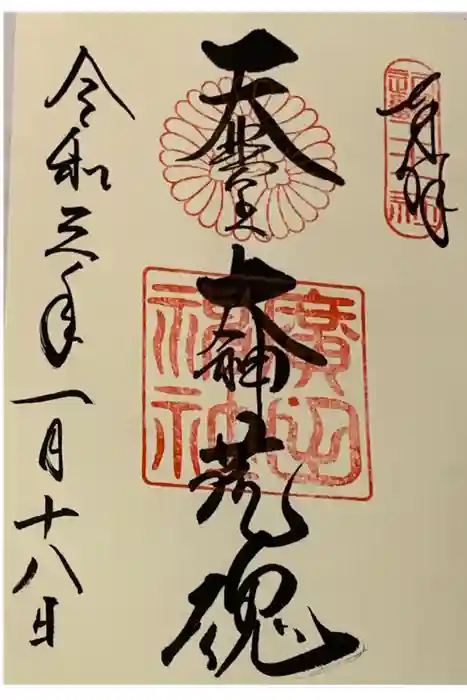 奉拝
天照大神荒魂
廣田
神社
令和三年一月十八日